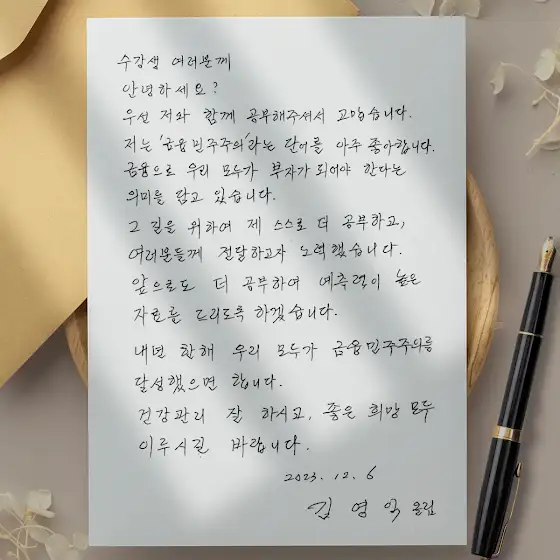 수강생 여러분께
안녕하세요?
우선 저와 함께 공부해주셔서 고맙습니다.
저는 '금융민주주의'라는 단어를 아주 좋아합니다.
금융으로 우리 모두가 부자가 되어야 한다는
의미를 담고 있습니다.
그 길을 위하여 제 스스로 더 공부하고,
여러분들께 전달하고자 노력했습니다.
앞으로도 더 공부하여 예측력이 높은
자료를 드리도록 하겠습니다.
내년 한해 우리 모두가 금융민주주의를
달성했으면 합니다.
건강관리 잘 하시고, 좋은 희망 모두
이루시길 바랍니다.
2023. 12. 6
김영익 올림